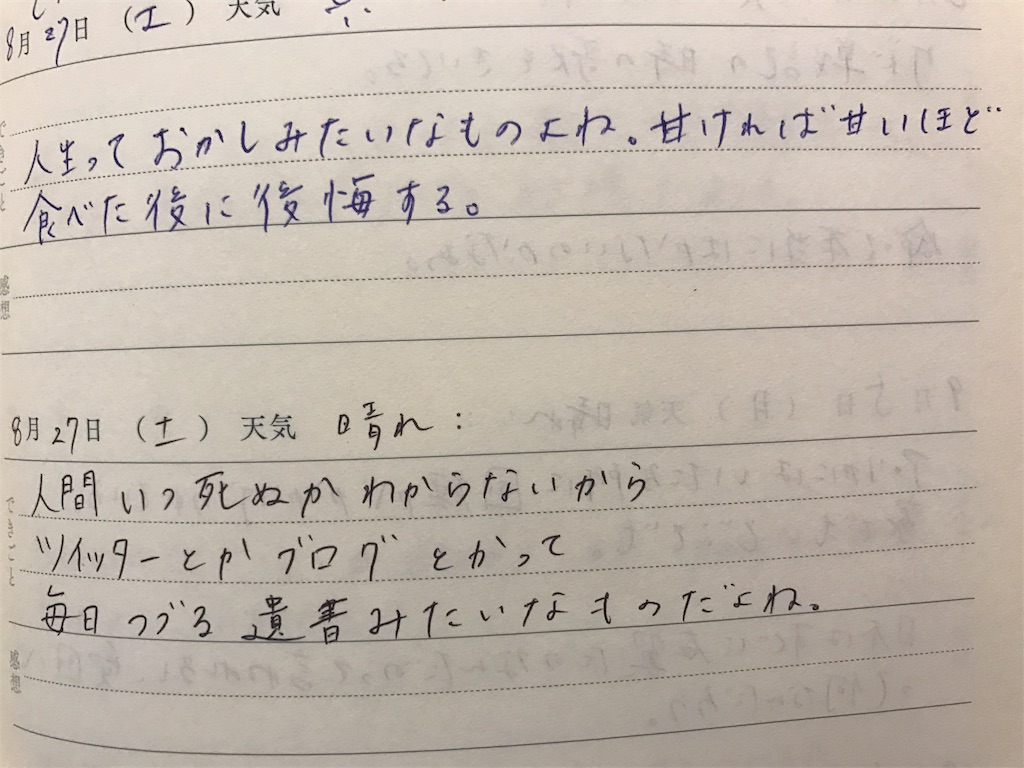 8月27日 (土) 天気
人生っておかしみたいなものよね。甘ければ甘いほど
食べた後に後悔する。
感想
8月27日 (土) 天気 晴れ:
できごと
人間いつ死ぬかわからないから
ツイッターとかブログとかって
毎日つづる遺書みたいなものだよね。
感想